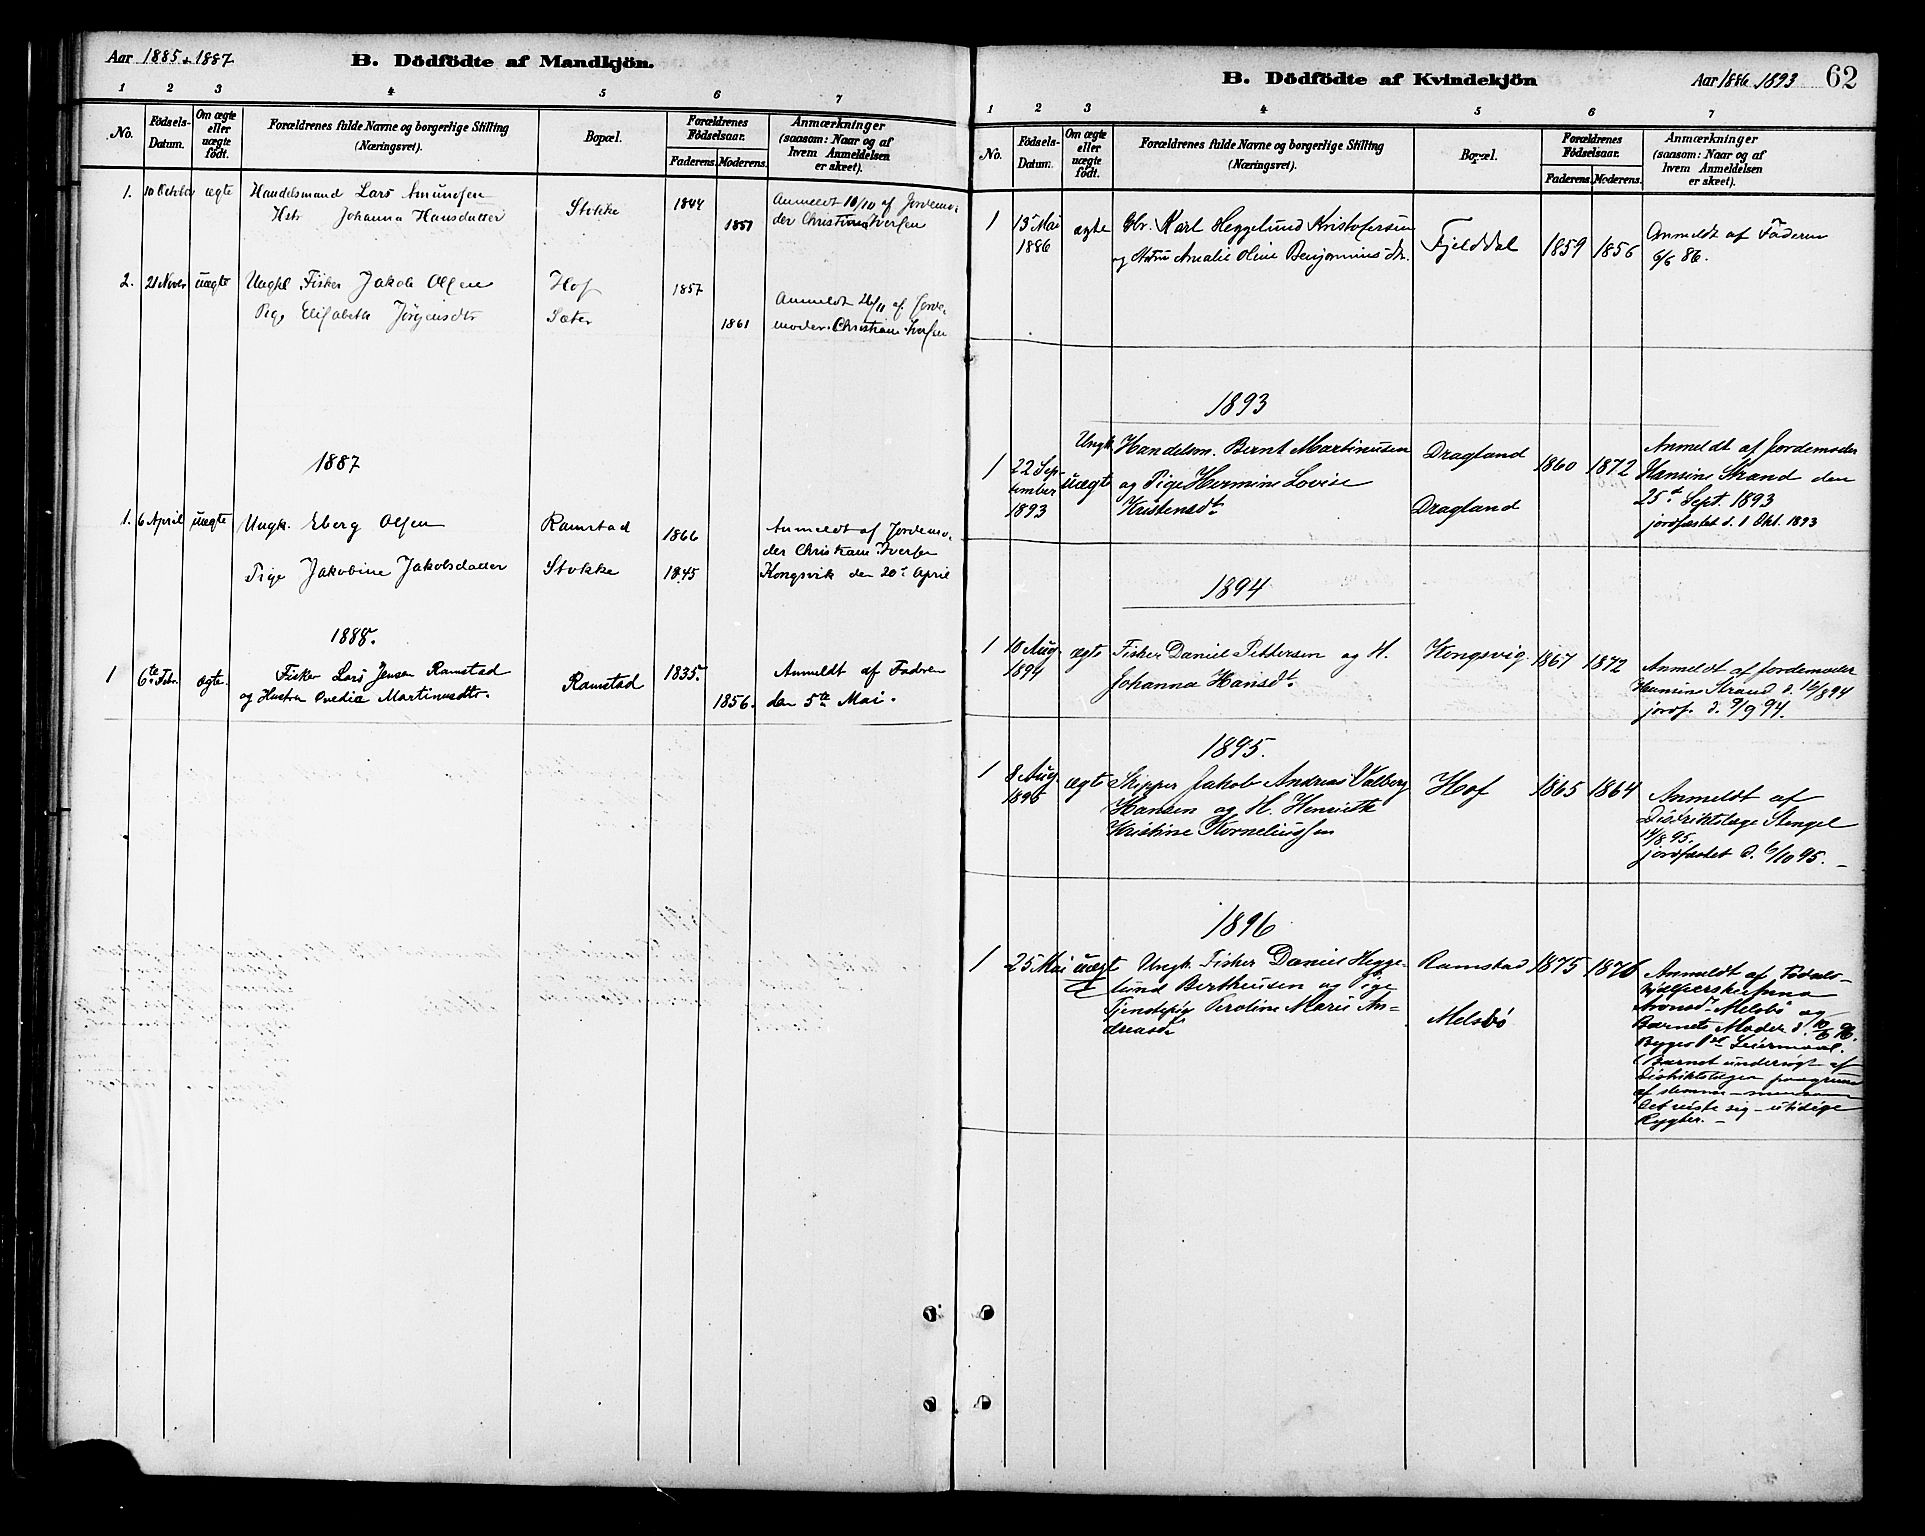 Aar 1885 . 1887
B. Dödfödte af Mandkjön.
1 2 3 4 5 6 7
No.
Födsels-
Datum.
Om ægte
eller
uægte
født.
Forældrenes fulde Navne og borgerlige Stilling
(Næringsvei).
Bopæl.
Forældrenes
Födselsaar.
Faderens. Moderens.
Anmærkninger
(saasom: Naar og af
hvem Anmeldelsen
er skeet).
1. 10 October ægte Handelsmand Lars Amundsen
Johanna Hansdatter
Stokke 1844 1851
Anmeldt 10/10 af Jordemo-
der Christiane Iversen
2. 21 Novbr uægte Ungkl. Fisker Jakob Olsen Hof 1857
Pige Elisabeth Jörgensdtr Sæter 1861
Anmeldt 26/11 af Jorde-
moder Christiane Iversen
1887
1. 6 April uægte Ungk. Eberg Olsen Ramstad 1866
Pige Jakobine Jakobsdatter Stokke 1845
Anmeldt af Jordemo-
der Christiane Iversen
Kongsvik den 20de April
1888.
1 6te Febr. ægte. Fisker Lars Jensen Ramstad
og Hustru Ovedia Martinusdtr.
Ramstad 1835. 1856.
Anmeldt af Faderen
den 5te Mai.
B. Dödfödte af Kvindekjön
Aar 1886 1893
62
1 2 3 4 5 6 7
No.
Födsels-
Datum.
Om ægte
eller
uægte
födt.
Forældrenes fulde Navne og borgerlige Stilling
(Næringsvei).
Bopæl.
Forældrenes
Födselsaar.
Faderens. Moderens.
Anmærkninger
(saasom: Naar og af
hvem Anmeldelsen
er skeet).
1 13 Mai ægte Gbr. Karl Heggelund Kristofersen
1886 og Hustru Amalie Oline Benjaminsdtr.
Fjelddal 1859 1856
Anmeldt af Faderen
6/6 86.
1893
1 22 Sep- uægte Ungk. Handelsm. Bernt Martinusen Dragland 1860 1872
tember og Pige Hermine Lovise
1893 Kristensdt. Dragland
Anmeldt af Jordemoder
Hansine Strand den
25de Sept. 1893
jordfæstet d. 1 Okt. 1893
1894
1 10 Aug. ægte Fisker Daniel Pettersen og H. Kongsvig 1867 1872
1894 Johanna Hansdt.
Anmeldt af Jordemoder
Hansine Strand d. 16/8 94
jordf. d. 9/9 94.
1895.
1 8 Aug ægte Skipper Jakob Andreas Valberg Hof 1865 1864
1895 Hansen og H. Henriette
Kristine Korneliussen
Anmeldt af
Distriktslæge Stengel
14/8 95.
jordfæstet d. 6/10 95.
1896
1 25 Mai uægt Ungk. Fisker Daniel Hegge- Ramstad 1875 1876
lund Bertheusen og Pige
Tjenestepige Karoline Marie An-
dreasdt Melsbö
Anmeldt af Födsels-
hjælperske Anna
Aronsdt Melsbö og
Barnets Moder d. 10/6 96.
Leiermaal.
(Barnet undersögt af
Distriktslægen paagrund
af slemme – men som
det viste sig – utidige
Rygter. –